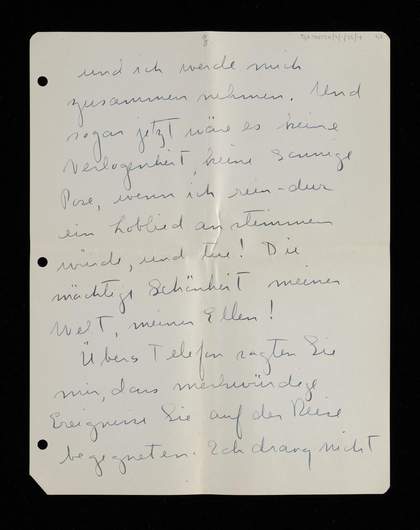 8
und ich werde mich
zusammen nehmen. Und
sogar jetzt wäre es keine
Verlogenheit, keine sonnige
Pose, wenn ich rein-dur
ein Loblied anstimmen
würde, und tue! Die
mächtige Schönheit meiner
Welt, meiner Ellen!
Übers Telefon sagten Sie
mir, dass merkwürdige
Ereignisse Sie auf der Reise
begegneten. Ich drang nicht